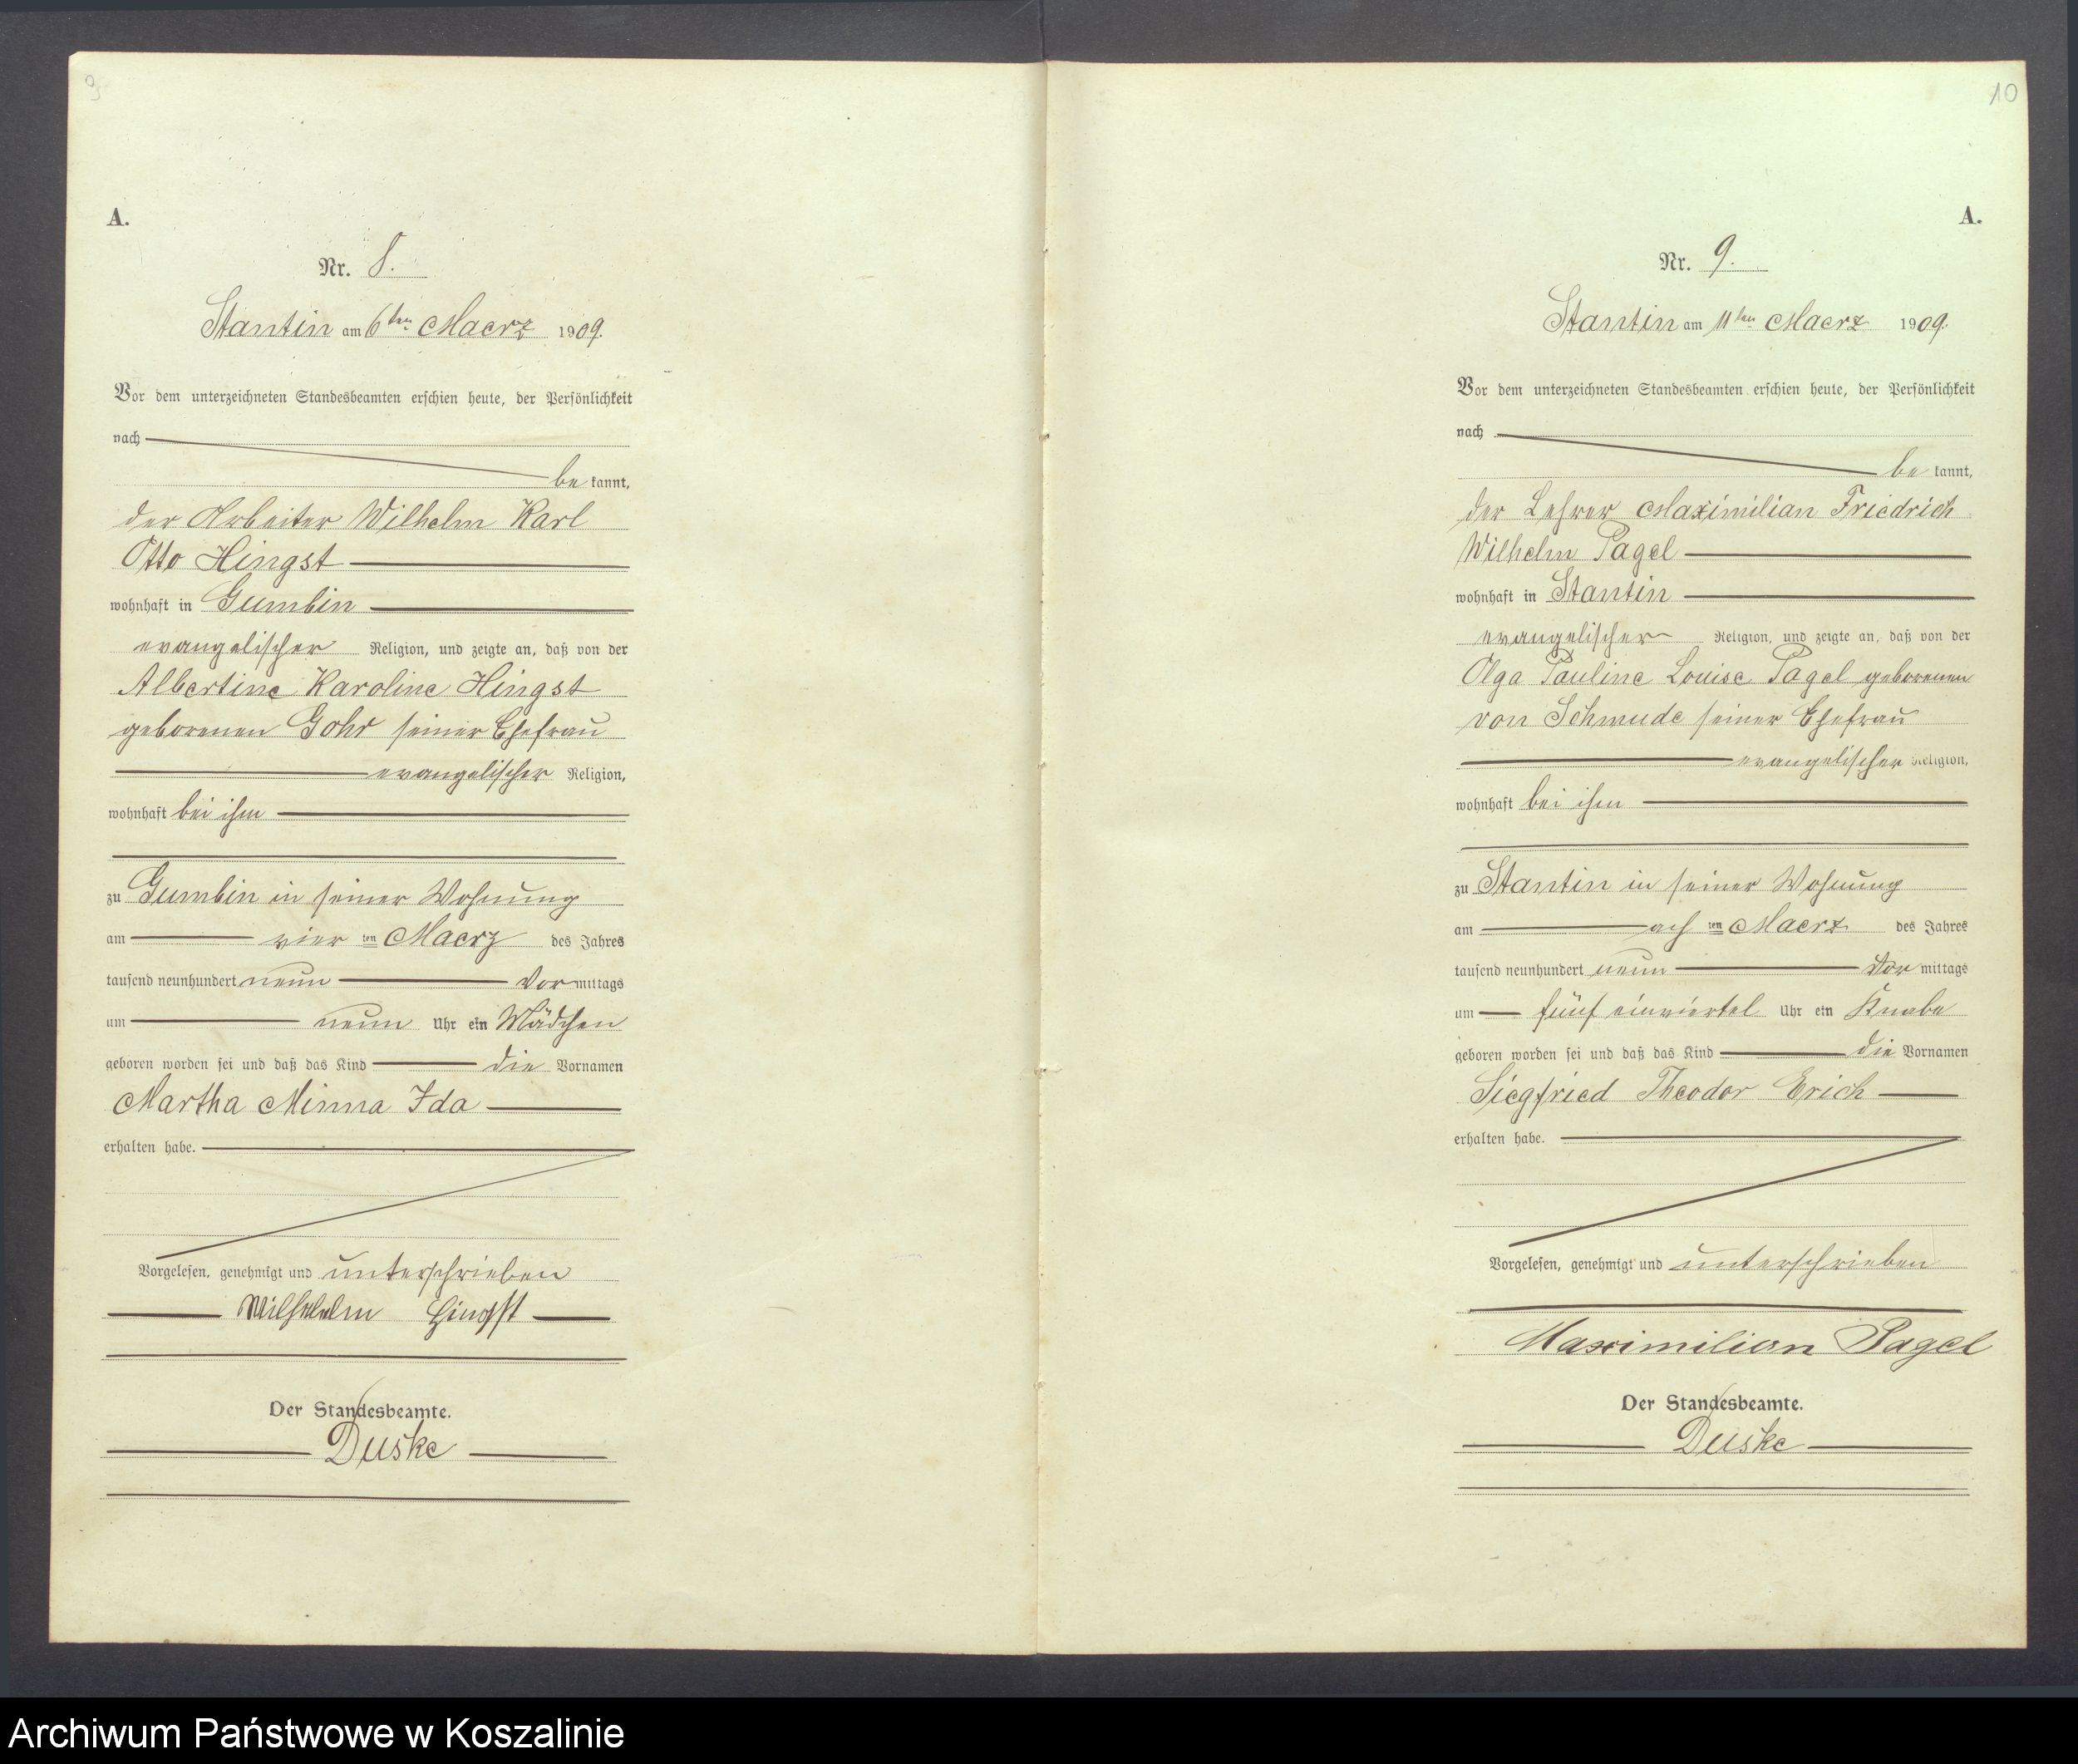 9
A.
Nr. 8.
Stantin am 6ten Maerz 1909.
Vor dem unterzeichneten Standesbeamten erschien heute, der Persönlichkeit
nach
be kannt,
der Arbeiter Wilhelm Karl
Otto Hingst
wohnhaft in Gumbin
evangelischer Religion, und zeigte an, daß von der
Albertine Karoline Hingst
geborenen Gohr seiner Ehefrau
evangelischer Religion,
wohnhaft bei ihm
zu Gumbin in seiner Wohnung
am vier ten Maerz des Jahres
tausend neunhundert neun Vor mittags
um neun Uhr ein Mädchen
geboren worden sei und daß das Kind die Vornamen
Martha Minna Ida
erhalten habe.
Vorgelesen, genehmigt und unterschrieben
Wilhelm Hingst
Der Standesbeamte.
Duske
10
A.
Nr. 9.
Stantin am 11ten Maerz 1909.
Vor dem unterzeichneten Standesbeamten erschien heute, der Persönlichkeit
nach
be kannt,
der Lehrer Maximilian Friedrich
Wilhelm Pagel
wohnhaft in Stantin
evangelischer Religion, und zeigte an, daß von der
Olga Pauline Louise Pagel geborenen
von Schmude seiner Ehefrau
evangelischer Religion,
wohnhaft bei ihm
zu Stantin in seiner Wohnung
am ach ten Maerz des Jahres
tausend neunhundert neun Vor mittags
um fünf einviertel Uhr ein Knabe
geboren worden sei und daß das Kind die Vornamen
Siegfried Theodor Erich
erhalten habe.
Vorgelesen, genehmigt und unterschrieben
Maximilian Pagel
Der Standesbeamte.
Duske
Archiwum Państwowe w Koszalinie